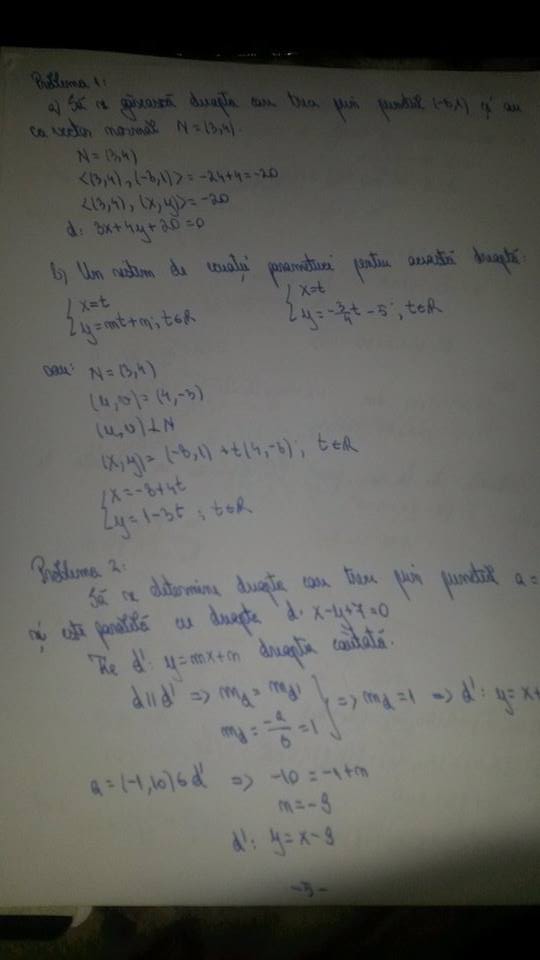 Problema 1:
a) Să se găsească dreapta care trece prin punctul (-8,1) și au
ca vector normal N = (3,4).
N = (3,4)
<(3,4), (-8,1)> = -24+4 = -20
<(3,4), (x,y)> = -20
d: 3x+4y+20=0
b) Un sistem de ecuații parametrice pentru această dreaptă:
{ x=t
{ y=mt+n; t∈R
{ x=t
{ y=-3/4 t - 5; t∈R
sau: N = (3,4)
(u,v) = (4,-3)
(u,v) ⊥ N
(x,y) = (-8,1) + t(4,-3); t∈R
{ x=-8+4t
{ y=1-3t ; t∈R
Problema 2:
Să se determine dreapta care trece prin punctul a =
și este paralelă cu dreapta d: x-y+7=0
Fie d': y=mx+n dreapta căutată.
d || d' => m_d = m_d'
m_d = -a/b = 1 } => m_d = 1 => d': y=x+
a = (-1,10) ∈ d' => -10 = -1+n
n = -9
d': y = x-9
-5-